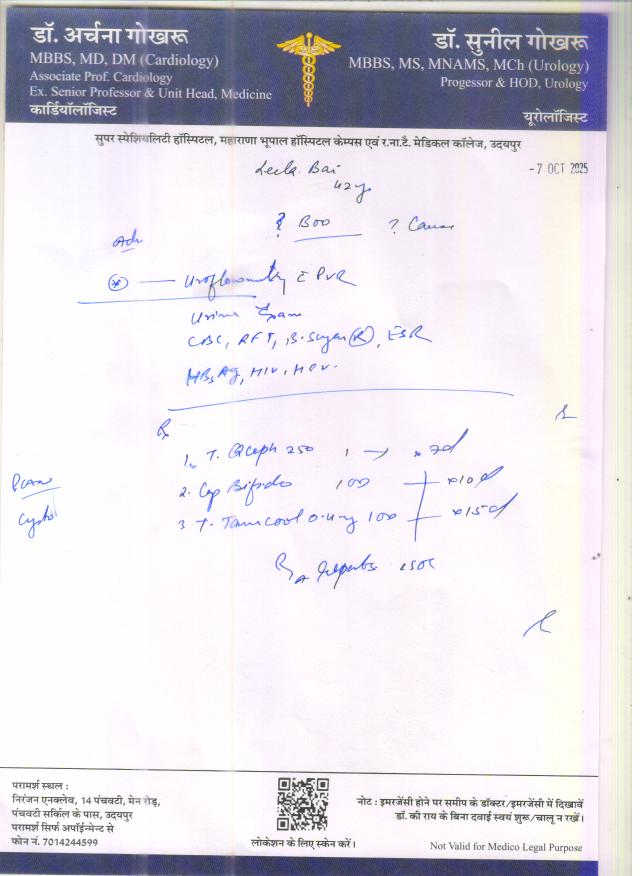 डॉ. अर्चना गोखरू
MBBS, MD, DM (Cardiology)
Associate Prof. Cardiology
Ex. Senior Professor & Unit Head, Medicine
कार्डियॉलॉजिस्ट
डॉ. सुनील गोखरू
MBBS, MS, MNAMS, MCh (Urology)
Progessor & HOD, Urology
यूरोलॉजिस्ट
सुपर स्पेशियलिटी हॉस्पिटल, महाराणा भूपाल हॉस्पिटल केम्पस एवं र.ना.टै. मेडिकल कॉलेज, उदयपुर
Leela Bai
42y
-7 OCT 2025
? BOO ? Cause
Adv
Uroflowmetry PVR
Urine Exam
CBC, RFT, B. Sugar (R), ESR
HBsAg, HIV, HCV.
Rx
1. T. 250 1 x 7d
2. Cap Bifido 100 x 10d
3 T. 0.4mg x 15d
Plan
Cysto
Reports
परामर्श स्थल :
निरंजन एनक्लेव, 14 पंचवटी, मेन रोड़,
पंचवटी सर्किल के पास, उदयपुर
परामर्श सिर्फ अपॉईन्मेन्ट से
फोन नं. 7014244599
लोकेशन के लिए स्केन करें।
नोट : इमरजेंसी होने पर समीप के डॉक्टर/इमरजेंसी में दिखावें
डॉ. की राय के बिना दवाई स्वयं शुरू/चालू न रखें।
Not Valid for Medico Legal Purpose